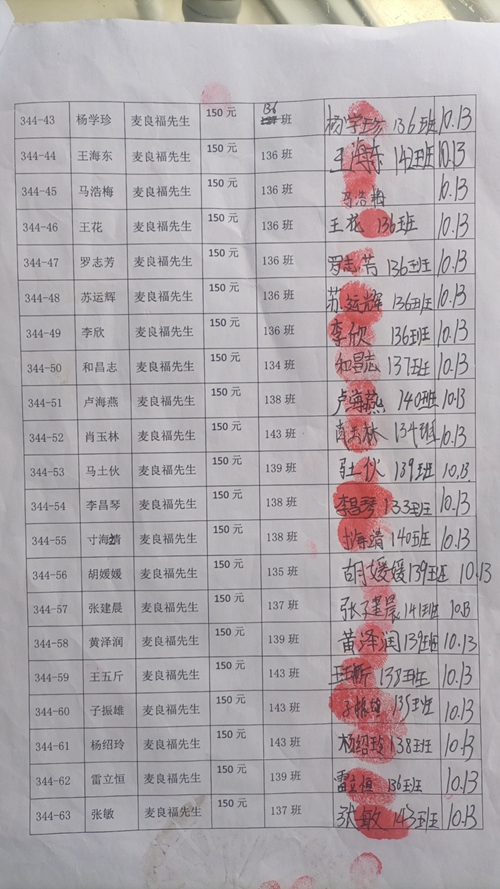 344-43 杨学珍 麦良福先生 150 元 136 班 杨学珍 136班 10.13
344-44 王海东 麦良福先生 150 元 136 班 王海东 142班 10.13
344-45 马浩梅 麦良福先生 150 元 136 班 马浩梅 10.13
344-46 王花 麦良福先生 150 元 136 班 王花 136班 10.13
344-47 罗志芳 麦良福先生 150 元 136 班 罗志芳 136班 10.13
344-48 苏运辉 麦良福先生 150 元 136 班 苏运辉 136班 10.13
344-49 李欣 麦良福先生 150 元 136 班 李欣 136班 10.13
344-50 和昌志 麦良福先生 150 元 134 班 和昌志 137班 10.13
344-51 卢海燕 麦良福先生 150 元 138 班 卢海燕 140班 10.13
344-52 肖玉林 麦良福先生 150 元 143 班 肖玉林 134班 10.13
344-53 马土伙 麦良福先生 150 元 139 班 马土伙 139班 10.13
344-54 李昌琴 麦良福先生 150 元 138 班 李昌琴 133班 10.13
344-55 寸海清 麦良福先生 150 元 138 班 寸海清 140班 10.13
344-56 胡媛媛 麦良福先生 150 元 135 班 胡媛媛 139班 10.13
344-57 张建晨 麦良福先生 150 元 137 班 张建晨 141班 10.13
344-58 黄泽润 麦良福先生 150 元 139 班 黄泽润 139班 10.13
344-59 王五斤 麦良福先生 150 元 143 班 138班 10.13
344-60 子振雄 麦良福先生 150 元 143 班 子振雄 135班 10.13
344-61 杨绍玲 麦良福先生 150 元 143 班 杨绍玲 138班 10.13
344-62 雷立恒 麦良福先生 150 元 139 班 雷立恒 136班 10.13
344-63 张敏 麦良福先生 150 元 137 班 张敏 143班 10.13